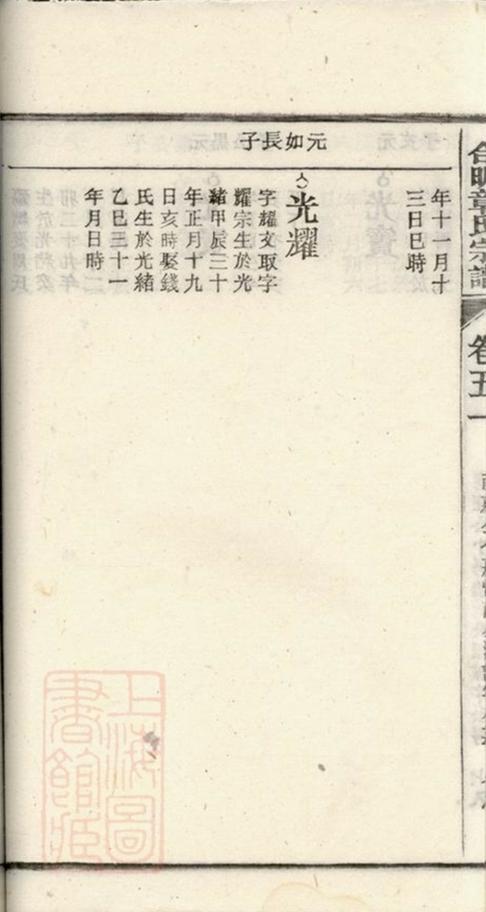 章氏宗譜
卷五
年十一月十
三日巳時
元如長子
光耀
字耀文取字
耀宗生於光
緒甲辰三十
年正月十九
日亥時娶錢
氏生於光緒
乙巳三十一
年月日時
上海圖
書館藏